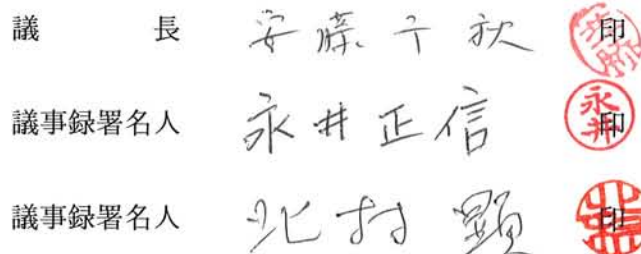 議長 安藤千秋 印
議事録署名人 永井正信 印
議事録署名人 北村顕 印